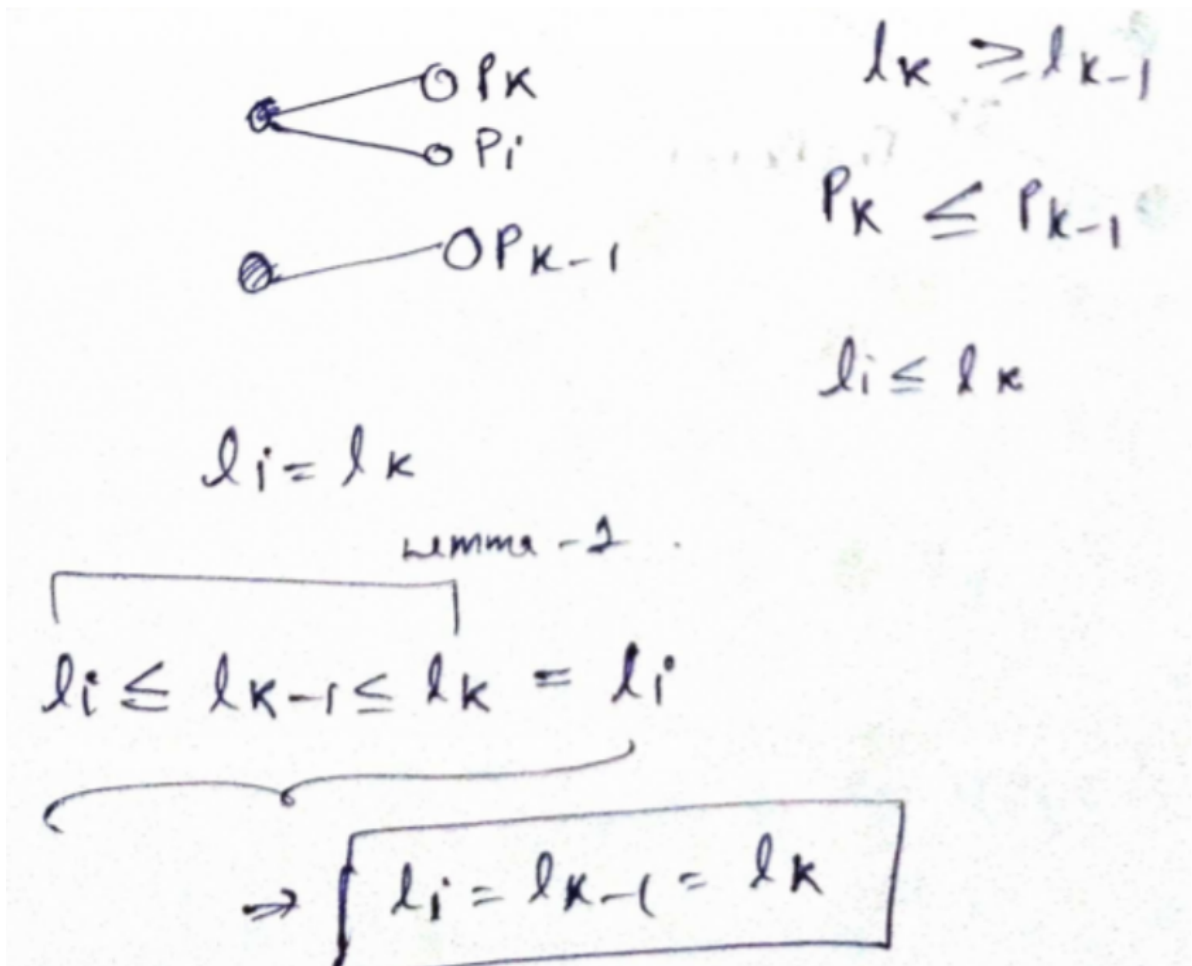 PK
Pi
PK-1
lK ≥ lK-1
PK ≤ PK-1
li ≤ lK
li = lK
Lemma - 1.
li ≤ lK-1 ≤ lK = li
⇒ li = lK-1 = lK